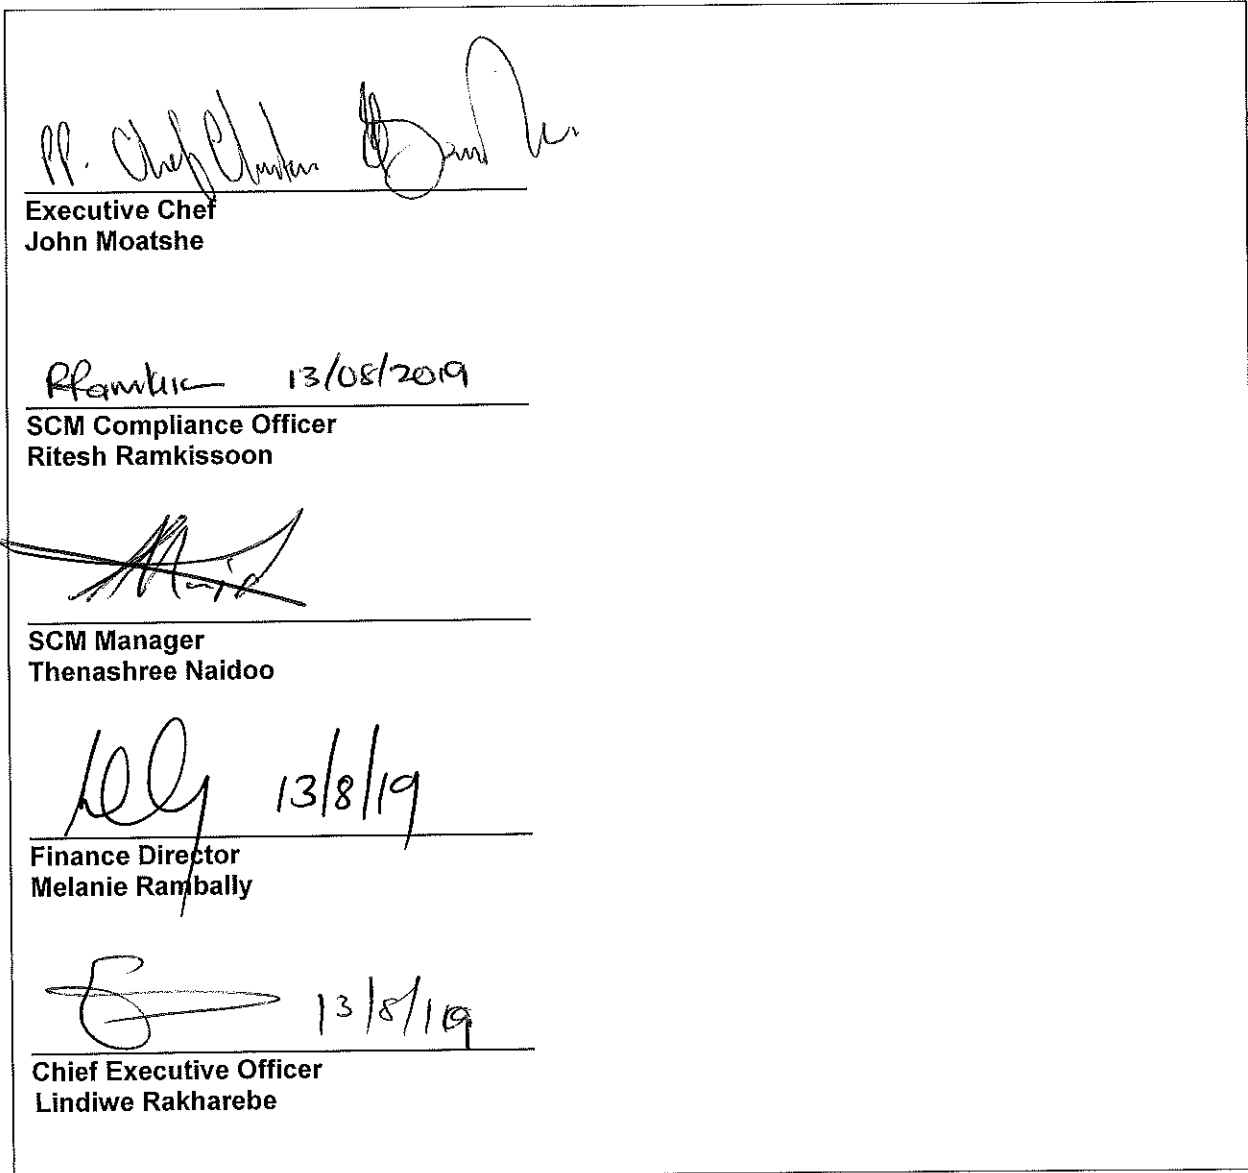 PP. Chef
Executive Chef
John Moatshe
13/08/2019
SCM Compliance Officer
Ritesh Ramkissoon
SCM Manager
Thenashree Naidoo
13/8/19
Finance Director
Melanie Rambally
13/8/19
Chief Executive Officer
Lindiwe Rakharebe